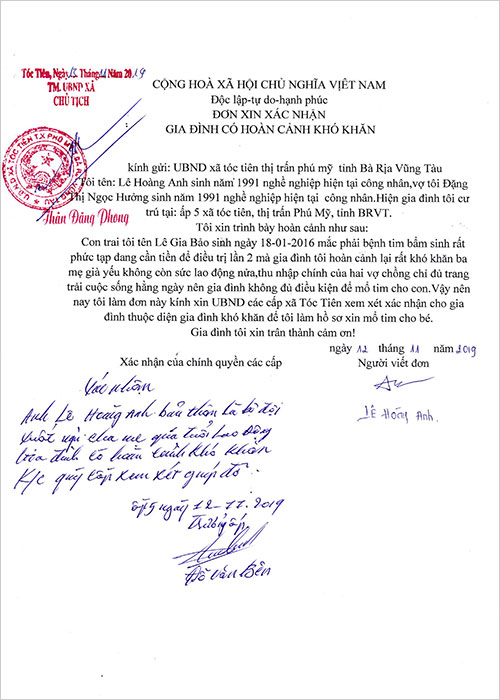 Tóc Tiên, Ngày 13 Tháng 11 Năm 2019
TM. UBND XÃ
CHỦ TỊCH
CỘNG HOÀ XÃ HỘI CHỦ NGHĨA VIỆT NAM
Độc lập-tự do-hạnh phúc
ĐƠN XIN XÁC NHẬN
GIA ĐÌNH CÓ HOÀN CẢNH KHÓ KHĂN
Thân Đăng Phong
kính gửi: UBND xã tóc tiên thị trấn phú mỹ tỉnh Bà Rịa Vũng Tàu
Tôi tên: Lê Hoàng Anh sinh năm 1991 nghề nghiệp hiện tại công nhân,vợ tôi Đặng
Thị Ngọc Hưởng sinh năm 1991 nghề nghiệp hiện tại công nhân.Hiện gia đình tôi cư
trú tại: ấp 5 xã tóc tiên, thị trấn Phú Mỹ, tỉnh BRVT.
Tôi xin trình bày hoàn cảnh như sau:
Con trai tôi tên Lê Gia Bảo sinh ngày 18-01-2016 mắc phải bệnh tim bẩm sinh rất
phức tạp đang cần tiền để điều trị lần 2 mà gia đình tôi hoàn cảnh lại rất khó khăn ba
mẹ già yếu không còn sức lao động nữa,thu nhập chính của hai vợ chồng chỉ đủ trang
trải cuộc sống hằng ngày nên gia đình không đủ điều kiện để mổ tim cho con.Vậy nên
nay tôi làm đơn này kính xin UBND các cấp xã Tóc Tiên xem xét xác nhận cho gia
đình thuộc diện gia đình khó khăn để tôi làm hồ sơ xin mổ tim cho bé.
Gia đình tôi xin trân thành cảm ơn!
ngày 12 tháng 11 năm 2019
Xác nhận của chính quyền các cấp
Người viết đơn
Xác nhận
Lê Hoàng Anh.
Anh Lê Hoàng Anh bản thân là bộ đội
xuất ngũ cha mẹ quá tuổi lao động
Gia đình có hoàn cảnh khó khăn
K/c quý cấp xem xét giúp đỡ..
ấp 5 ngày 12-11-2019
Trưởng ấp
Đỗ Văn Bên